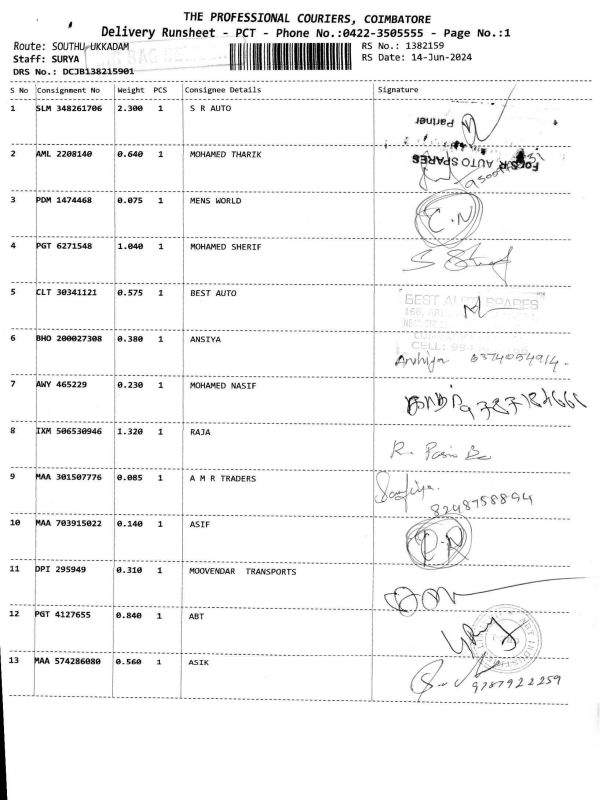 THE PROFESSIONAL COURIERS, COIMBATORE
Delivery Runsheet - PCT - Phone No.:0422-3505555 - Page No.:1
Route: SOUTHU UKKADAM
RS No.: 1382159
Staff: SURYA
RS Date: 14-Jun-2024
DRS No.: DCJB138215901
S No Consignment No Weight PCS Consignee Details Signature
1 SLM 348261706 2.300 1 S R AUTO
Partner
2 AML 2208140 0.640 1 MOHAMED THARIK
For S.R. AUTO SPARES
3 PDM 1474468 0.075 1 MENS WORLD
C.N
4 PGT 6271548 1.040 1 MOHAMED SHERIF
5 CLT 30341121 0.575 1 BEST AUTO
BEST AUTO SPARES
6 BHO 200027308 0.380 1 ANSIYA
CELL:
6374054914.
7 AWY 465229 0.230 1 MOHAMED NASIF
8 IXM 506530946 1.320 1 RAJA
9 MAA 301507776 0.085 1 A M R TRADERS
8248758894
10 MAA 703915022 0.140 1 ASIF
11 DPI 295949 0.310 1 MOOVENDAR TRANSPORTS
12 PGT 4127655 0.840 1 ABT
13 MAA 574286080 0.560 1 ASIK
9787922259